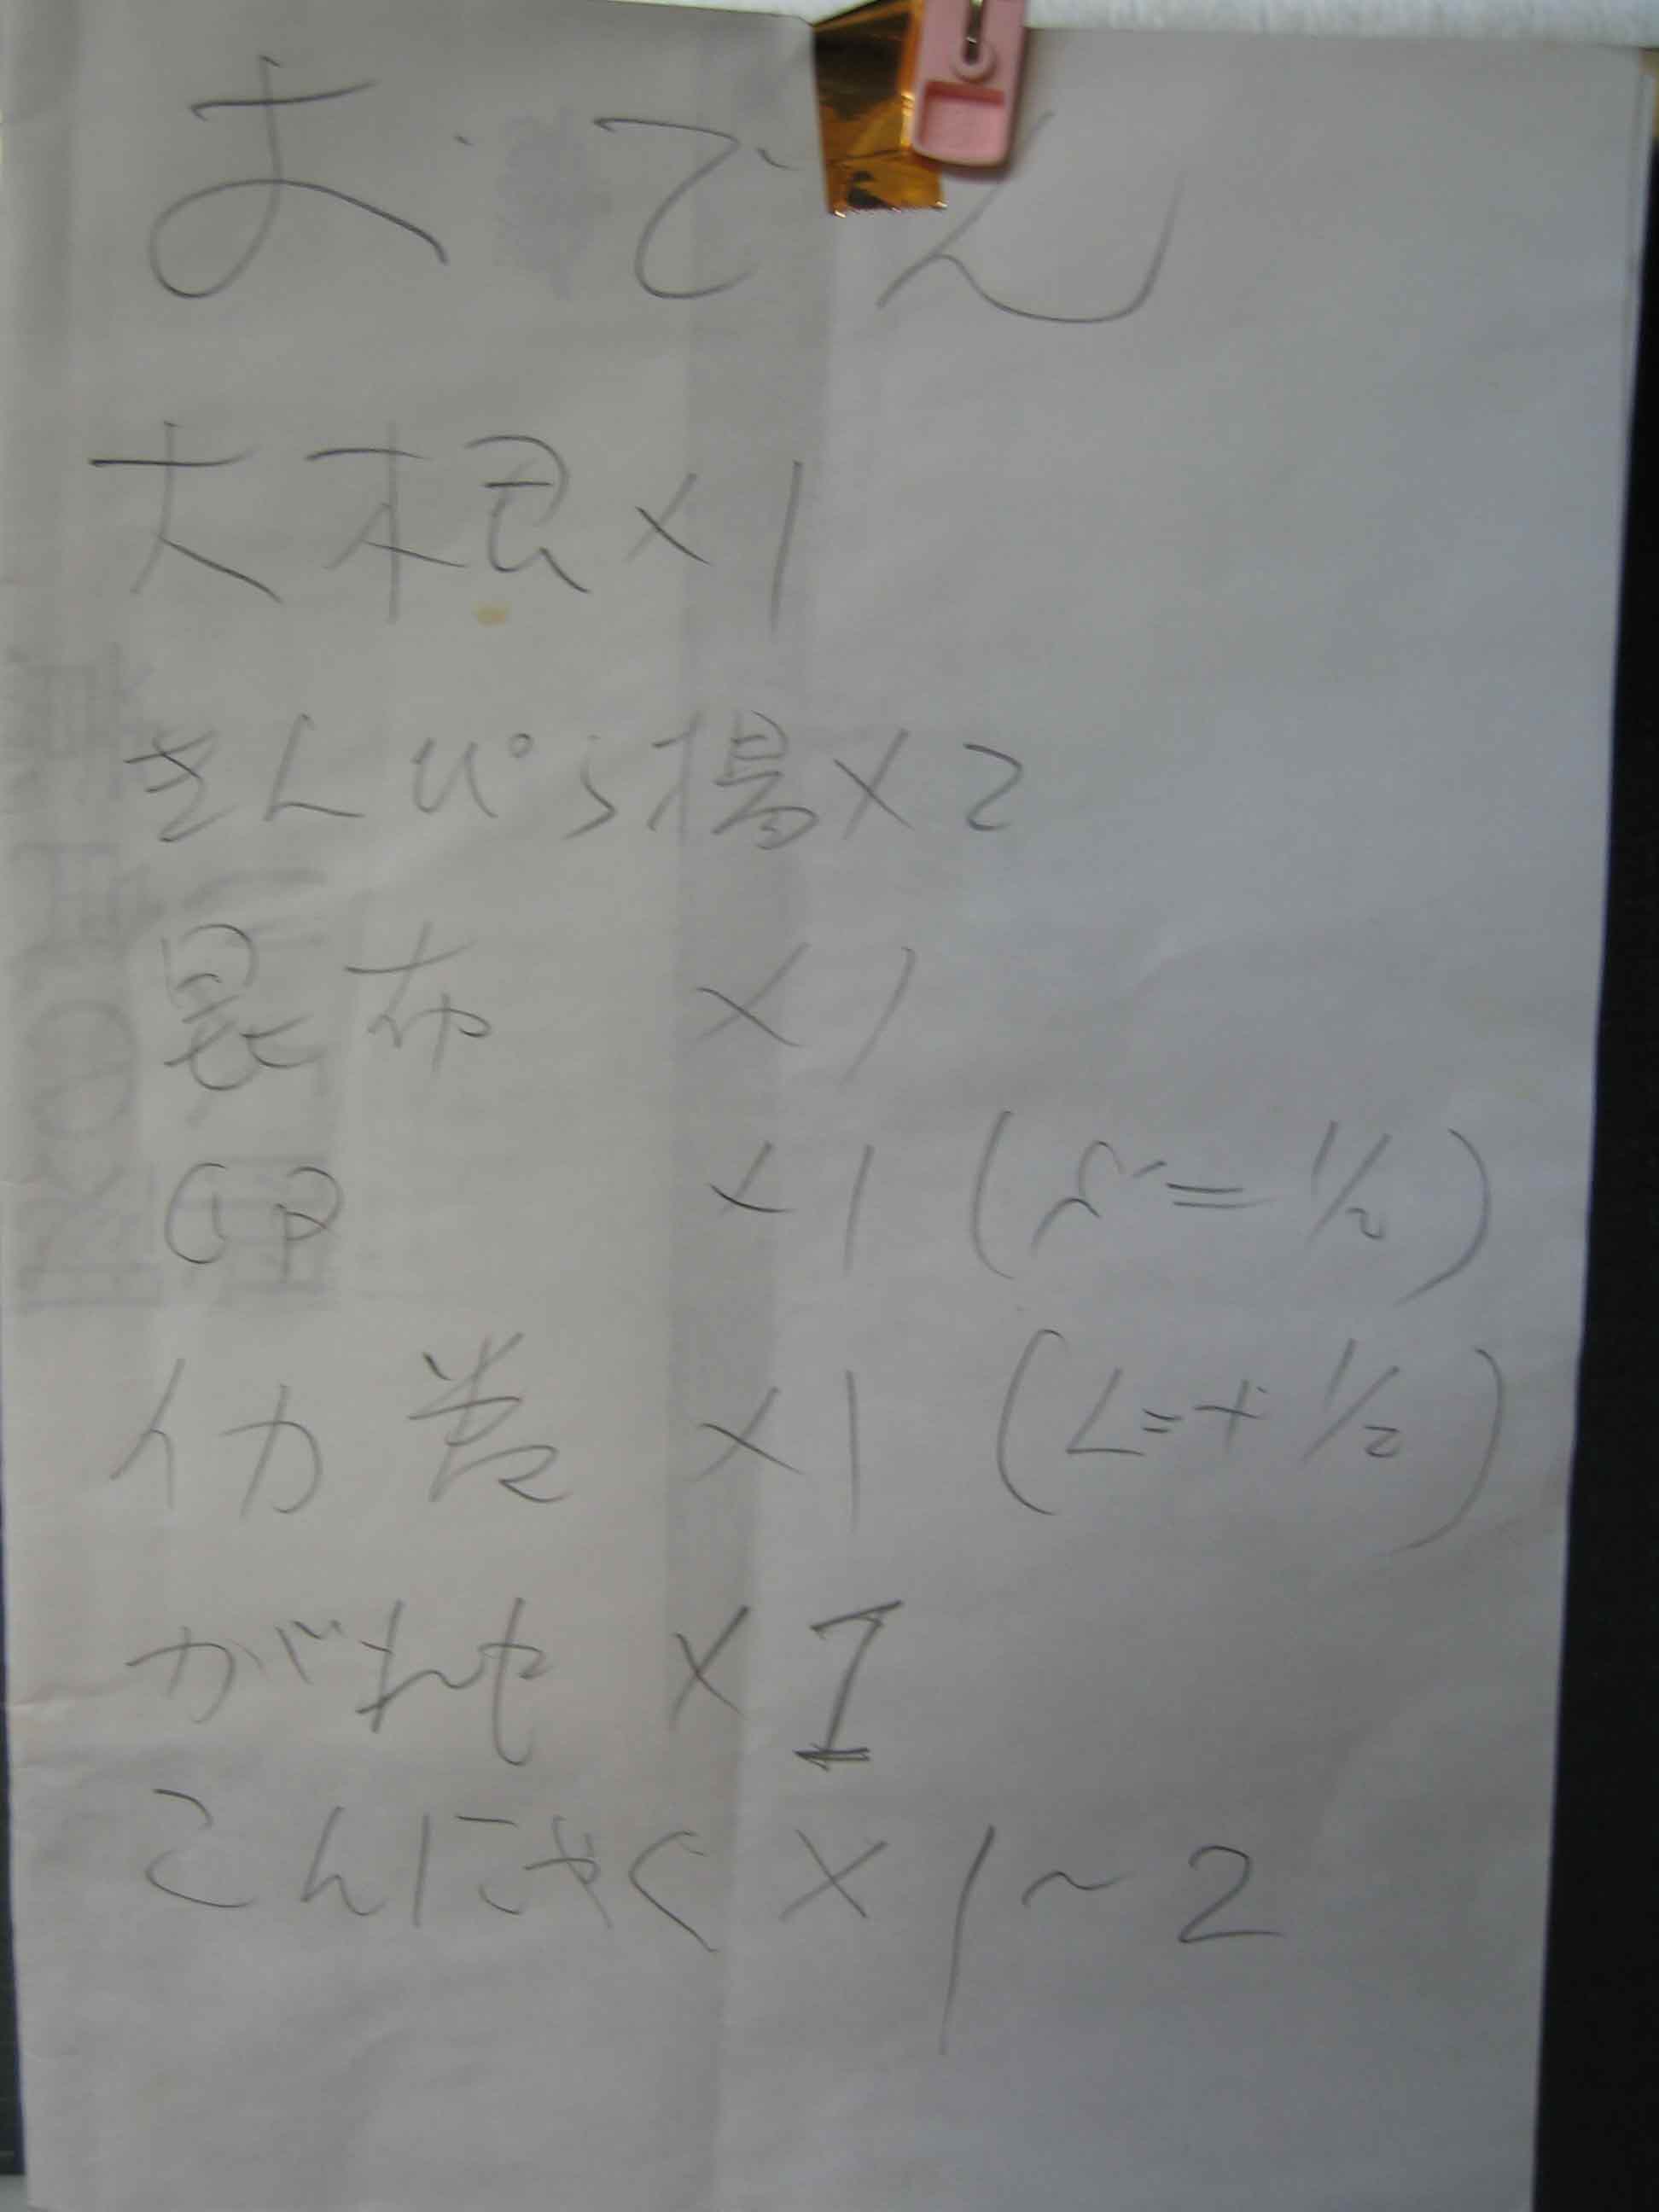 おでん
大根×1
きんぴら揚×2
昆布 ×1
卵 ×1 (=1/2)
イカ巻 ×1 (L=+1/2)
がんも ×1
こんにゃく×1~2